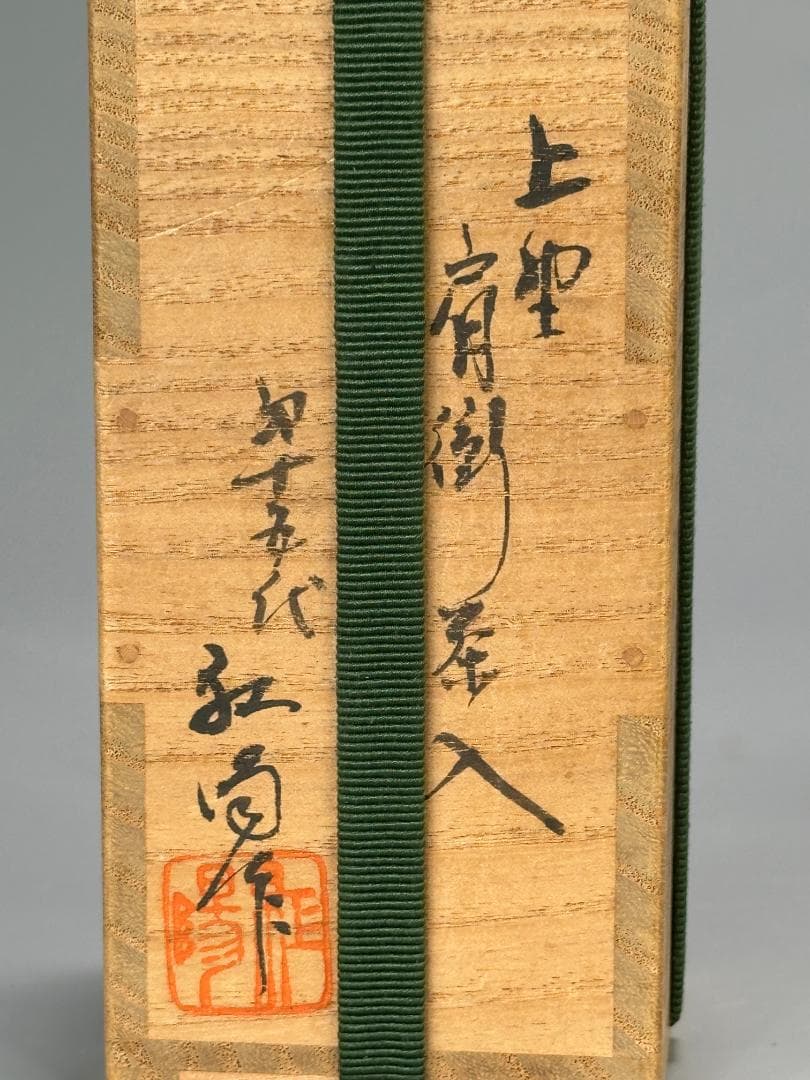 上野
肩衝茶入
第十五代
紅陽作